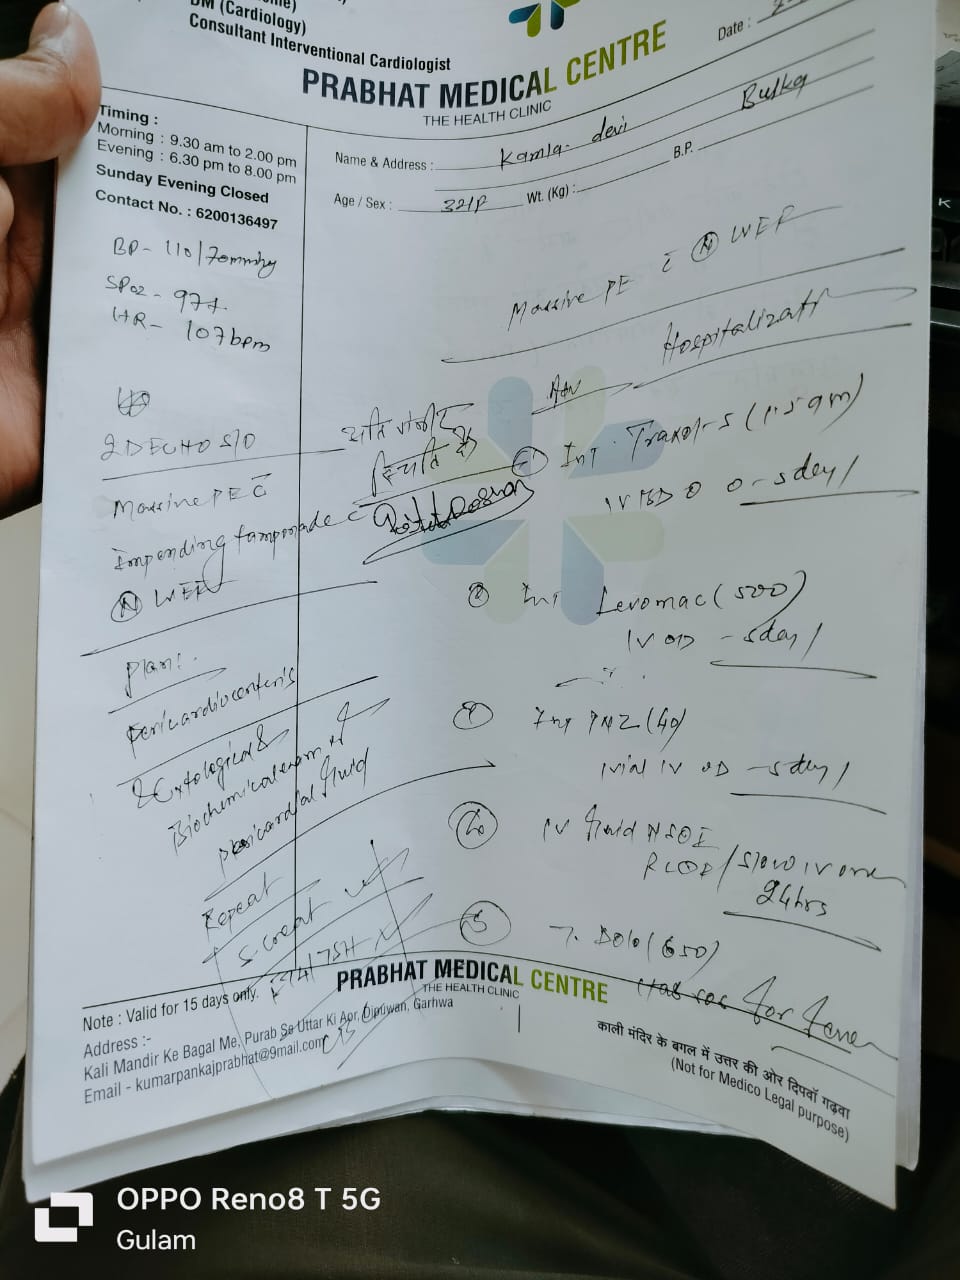 DM (Cardiology)
Consultant Interventional Cardiologist
PRABHAT MEDICAL CENTRE
THE HEALTH CLINIC
Date :
Timing :
Morning : 9.30 am to 2.00 pm
Evening : 6.30 pm to 8.00 pm
Sunday Evening Closed
Contact No. : 6200136497
Name & Address : Kamla devi Bulka
Age / Sex : 32/F Wt. (Kg) : B.P.
BP- 110/70mmHg
SPO2 - 97%
HR- 107bpm
2D ECHO S/O
Massive PE c̄
Impending tamponade c̄
(N) LVEF
Plan:
Pericardiocentesis
& Cytological &
Biochemical exam of
pericardial fluid
Repeat
S. Creat
Massive PE c̄ (N) LVEF
Adv Hospitalizati
अति गंभीर
स्थिति है
Inj. Traxol-S (1.5gm)
IV BD 5day
Inj Levomac (500)
IV OD - 5day
Inj PNZ (40)
1vial IV OD - 5day
IV fluid
/ slow IV over
24hrs
T. Dolo (650)
1tab sos for fever
Note : Valid for 15 days only.
PRABHAT MEDICAL CENTRE
THE HEALTH CLINIC
Address :-
Kali Mandir Ke Bagal Me, Purab Se Uttar Ki Aor, Dipuwan, Garhwa
Email - kumarpankajprabhat@9mail.com
काली मंदिर के बगल में उत्तर की ओर दिपवाँ गढ़वा
(Not for Medico Legal purpose)
OPPO Reno8 T 5G
Gulam